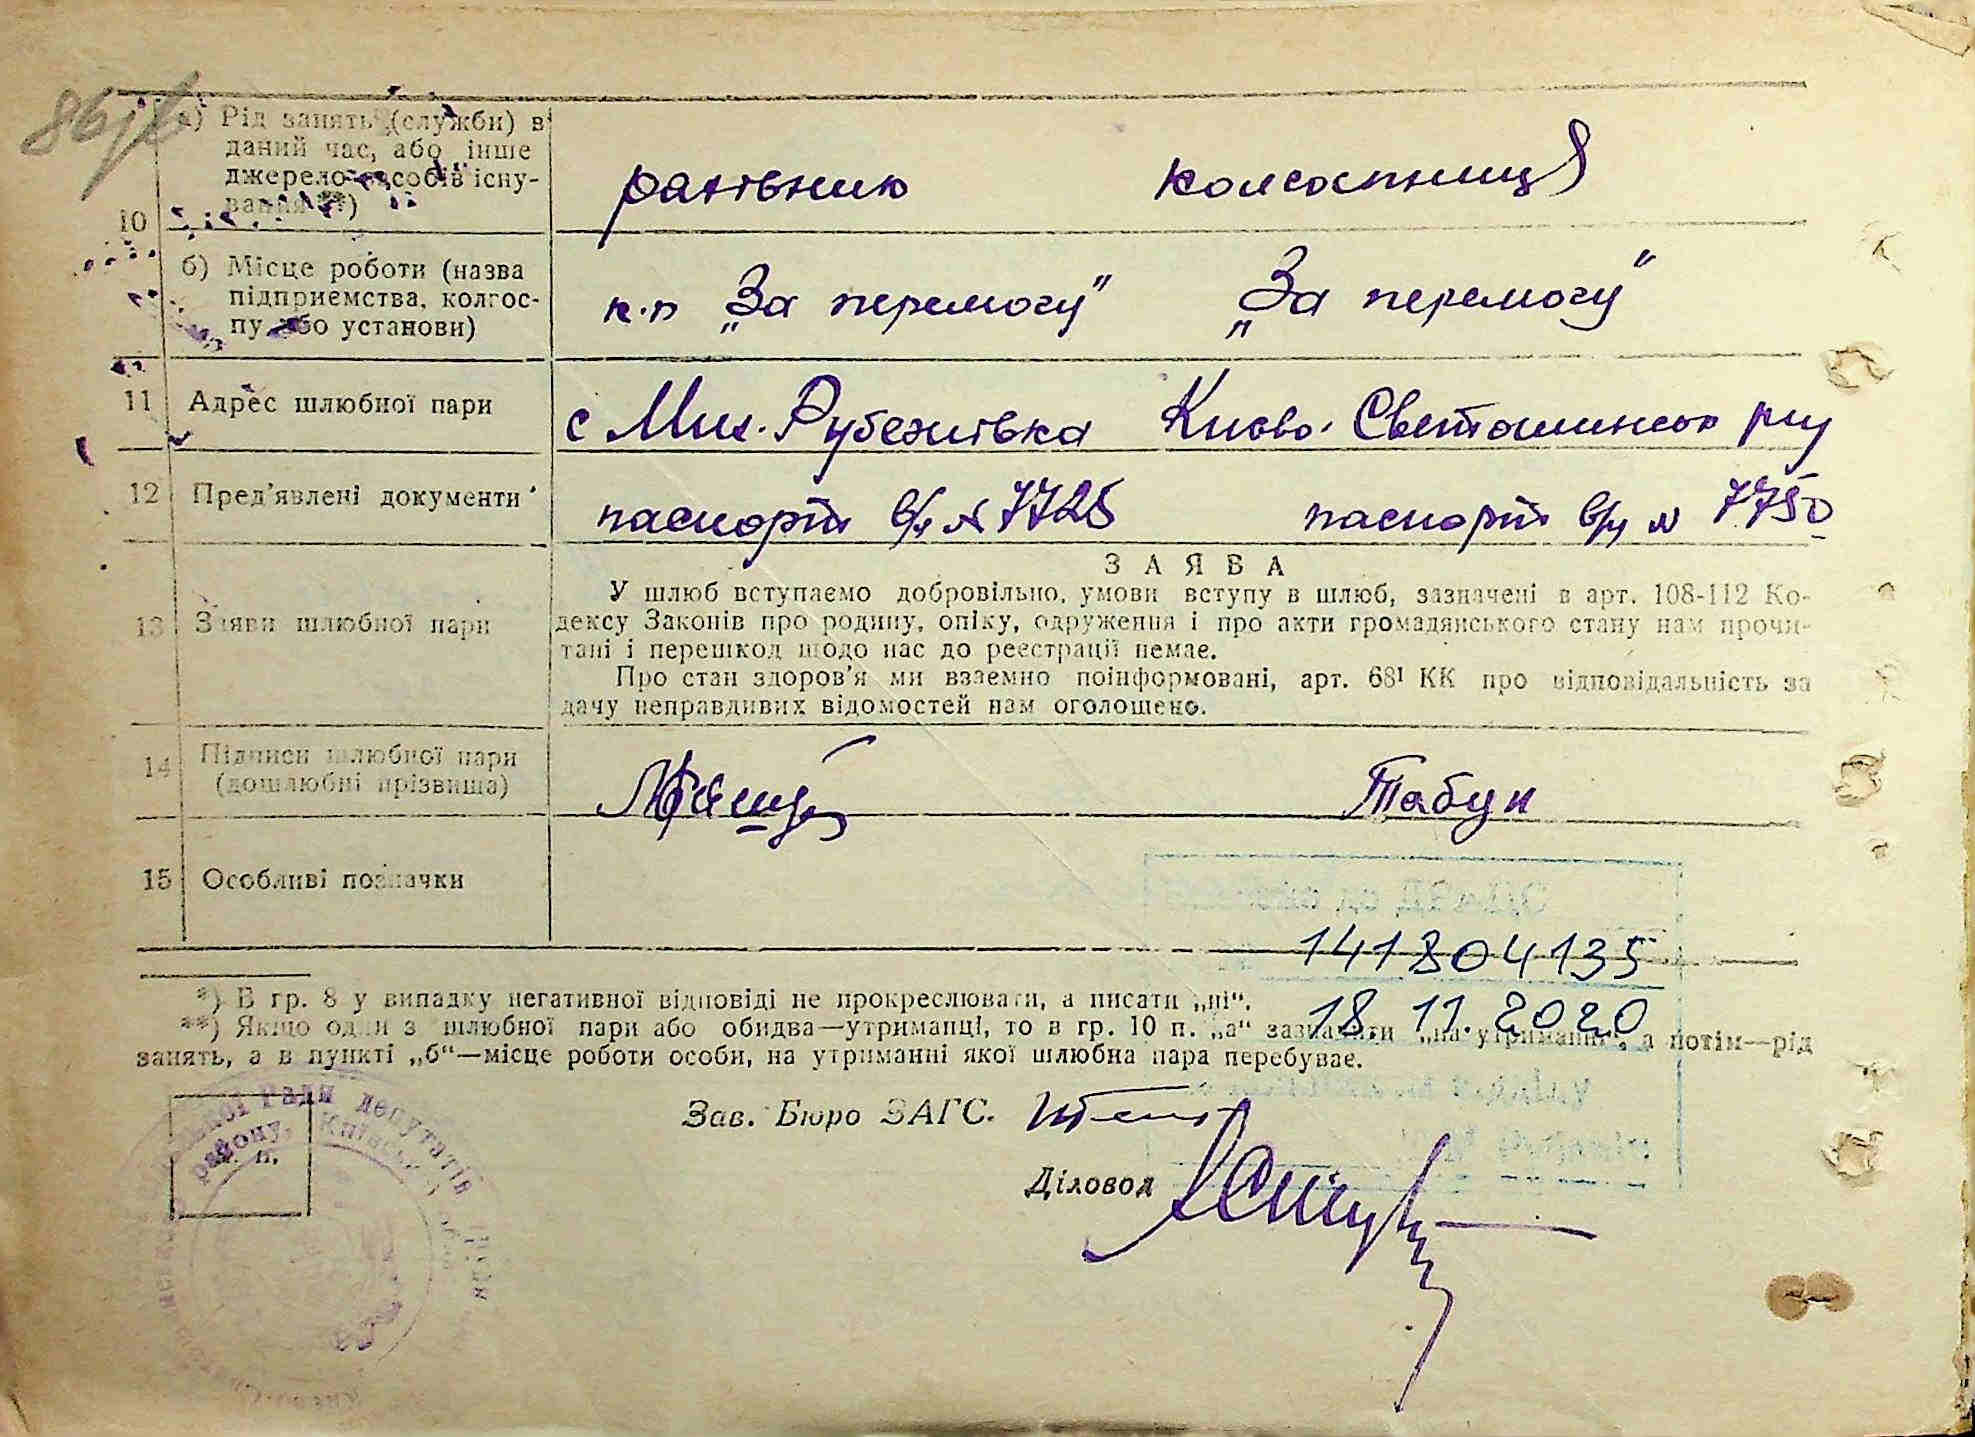 а) Рід занять (служби) в
даний час, або інше
джерело засобів існу-
вання **)
рахівник колгоспниця
10
б) Місце роботи (назва
підприємства, колгос-
пу або установи)
к-п „За перемогу" „За перемогу"
11 Адрес шлюбної пари
с Мих. Рубежівка Києво. Святошинськ р-ну
12 Пред'явлені документи
паспорт в/ч № 7725 паспорт в/ч № 7750
13 Заяви шлюбної пари
ЗАЯВА
У шлюб вступаємо добровільно, умови вступу в шлюб, зазначені в арт. 108-112 Ко-
дексу Законів про родину, опіку, одруження і про акти громадянського стану нам прочи-
тані і перешкод щодо нас до реєстрації немає.
Про стан здоров'я ми взаємно поінформовані, арт. 68¹ КК про відповідальність за
дачу неправдивих відомостей нам оголошено.
14 Підписи шлюбної пари
(дошлюбні прізвища)
Табун
15 Особливі позначки
141804135
18 11. 2020
*) В гр. 8 у випадку негативної відповіді не прокреслювати, а писати „ні".
**) Якщо один з шлюбної пари або обидва—утриманці, то в гр. 10 п. „а" зазначати „на утриманні", а потім—рід
занять, а в пункті „б"—місце роботи особи, на утриманні якої шлюбна пара перебуває.
Зав. Бюро ЗАГС.
Діловод
м. п.
Ради депутатів
району, Київської